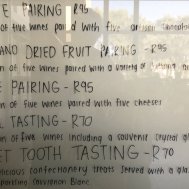 E PAIRING - R95
of five wines paired with five
ANO DRIED FRUIT PAIRING - R95
n of five wines paired with a variety of
E PAIRING - R95
n of five wines paired with five cheeses
L TASTING - R70
n of five wines including a souvenir crystal
ET TOOTH TASTING - R70
licious confectionery treats served with a
Sauvignon Blanc